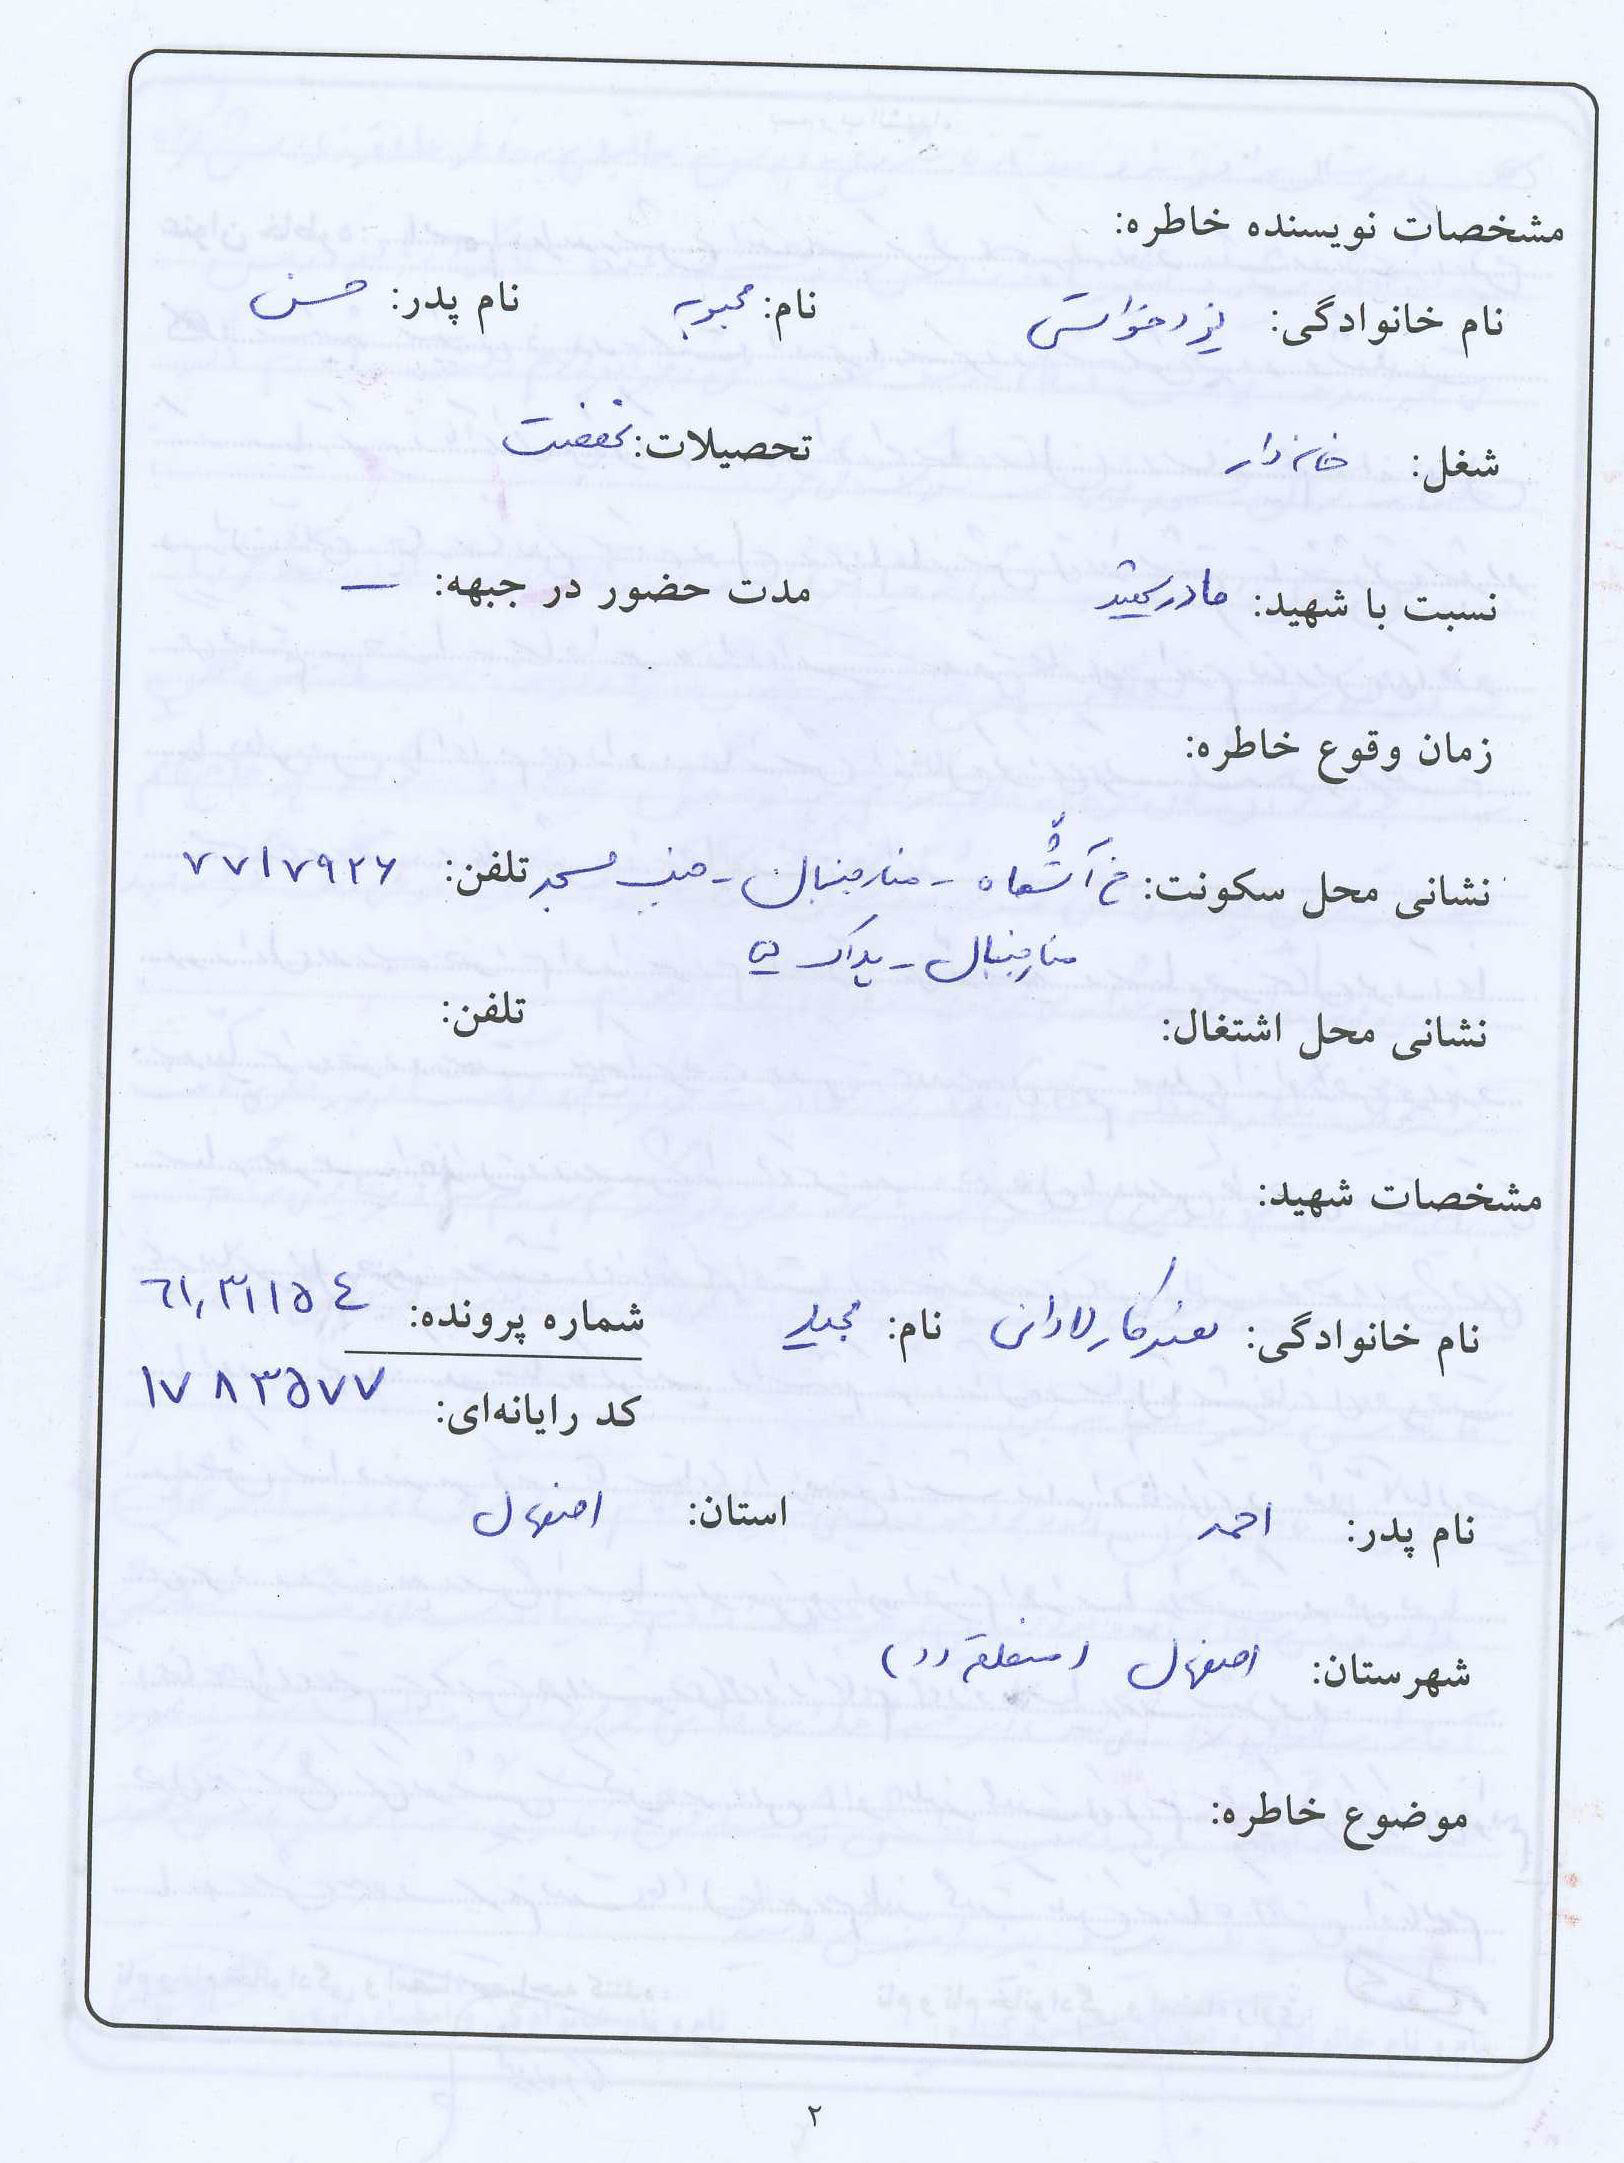 مشخصات نویسنده خاطره:
نام خانوادگی: یزدخواستی نام: محبوبه نام پدر: حسن
شغل: خانه دار تحصیلات: نهضت
نسبت با شهید: مادر شهید مدت حضور در جبهه: —
زمان وقوع خاطره:
نشانی محل سکونت: خ آتشگاه - منارجنبان - جنب مسجد تلفن: ۷۷۱۷۹۲۶
منارجنبان - پلاک ۵
نشانی محل اشتغال: تلفن:
مشخصات شهید:
نام خانوادگی: صفرکار لادانی نام: مجید شماره پرونده: ٦١٫٣١١٥٤
کد رایانه‌ای: ۱۷۸۳۵۷۷
نام پدر: احمد استان: اصفهان
شهرستان: اصفهان (منطقه دو)
موضوع خاطره:
۲